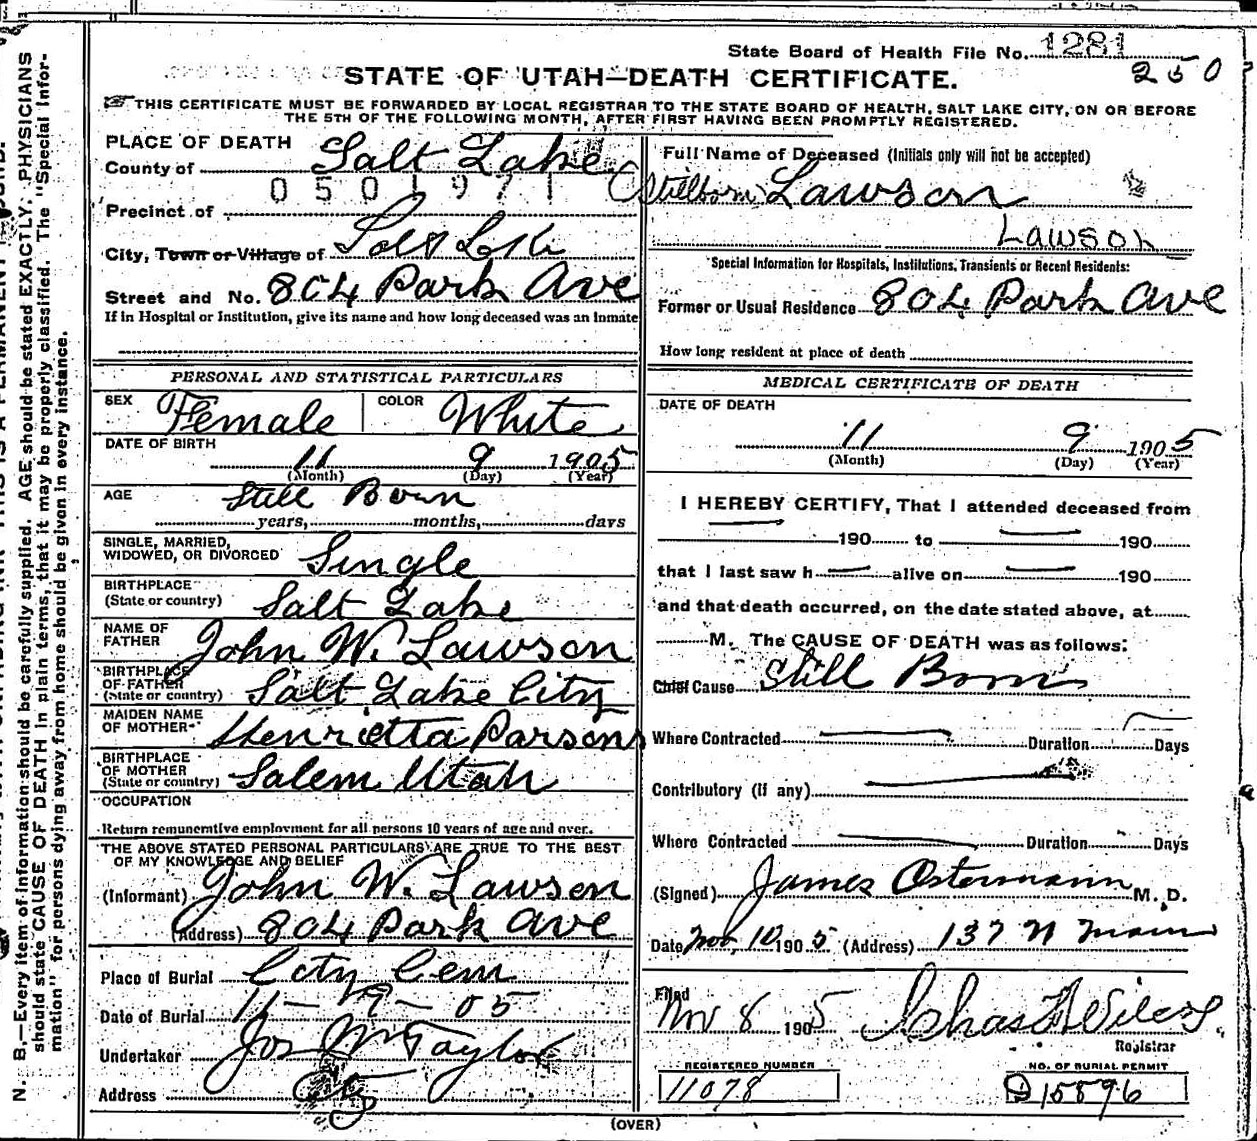 State Board of Health File No. 1281
250
STATE OF UTAH—DEATH CERTIFICATE.
THIS CERTIFICATE MUST BE FORWARDED BY LOCAL REGISTRAR TO THE STATE BOARD OF HEALTH, SALT LAKE CITY, ON OR BEFORE
THE 5TH OF THE FOLLOWING MONTH, AFTER FIRST HAVING BEEN PROMPTLY REGISTERED.
PLACE OF DEATH
County of Salt Lake
0501971
Precinct of
City, Town or Village of Salt Lake
Street and No. 804 Park Ave
If in Hospital or Institution, give its name and how long deceased was an inmate
Full Name of Deceased (Initials only will not be accepted)
(Stillborn) Lawson
Lawson
Special Information for Hospitals, Institutions, Transients or Recent Residents:
Former or Usual Residence 804 Park Ave
How long resident at place of death
PERSONAL AND STATISTICAL PARTICULARS
SEX Female COLOR White
DATE OF BIRTH
11 9 1905
(Month) (Day) (Year)
AGE Still Born
years, months, days
SINGLE, MARRIED,
WIDOWED, OR DIVORCED Single
BIRTHPLACE
(State or country) Salt Lake
NAME OF
FATHER John W. Lawson
BIRTHPLACE
OF FATHER
(State or country) Salt Lake City
MAIDEN NAME
OF MOTHER Henrietta Parsons
BIRTHPLACE
OF MOTHER
(State or country) Salem Utah
OCCUPATION
Return remunerative employment for all persons 10 years of age and over.
THE ABOVE STATED PERSONAL PARTICULARS ARE TRUE TO THE BEST
OF MY KNOWLEDGE AND BELIEF
(Informant) John W. Lawson
(Address) 804 Park Ave
Place of Burial City Cem
Date of Burial 11-9-05
Undertaker Jos Wm Taylor
Address City
MEDICAL CERTIFICATE OF DEATH
DATE OF DEATH
11 9 1905
(Month) (Day) (Year)
I HEREBY CERTIFY, That I attended deceased from
190 to 190
that I last saw h alive on 190
and that death occurred, on the date stated above, at
M. The CAUSE OF DEATH was as follows:
Chief Cause Still Born
Where Contracted Duration Days
Contributory (if any)
Where Contracted Duration Days
(Signed) James Ostermann M. D.
Date Nov 10 1905 (Address) 137 N Main
Filed
Nov 8 1905
Registrar
REGISTERED NUMBER
11078
NO. OF BURIAL PERMIT
D15896
(OVER)
N. B.—Every item of information should be carefully supplied. AGE should be stated EXACTLY. PHYSICIANS
should state CAUSE OF DEATH in plain terms, that it may be properly classified. The "Special Infor-
mation" for persons dying away from home should be given in every instance.